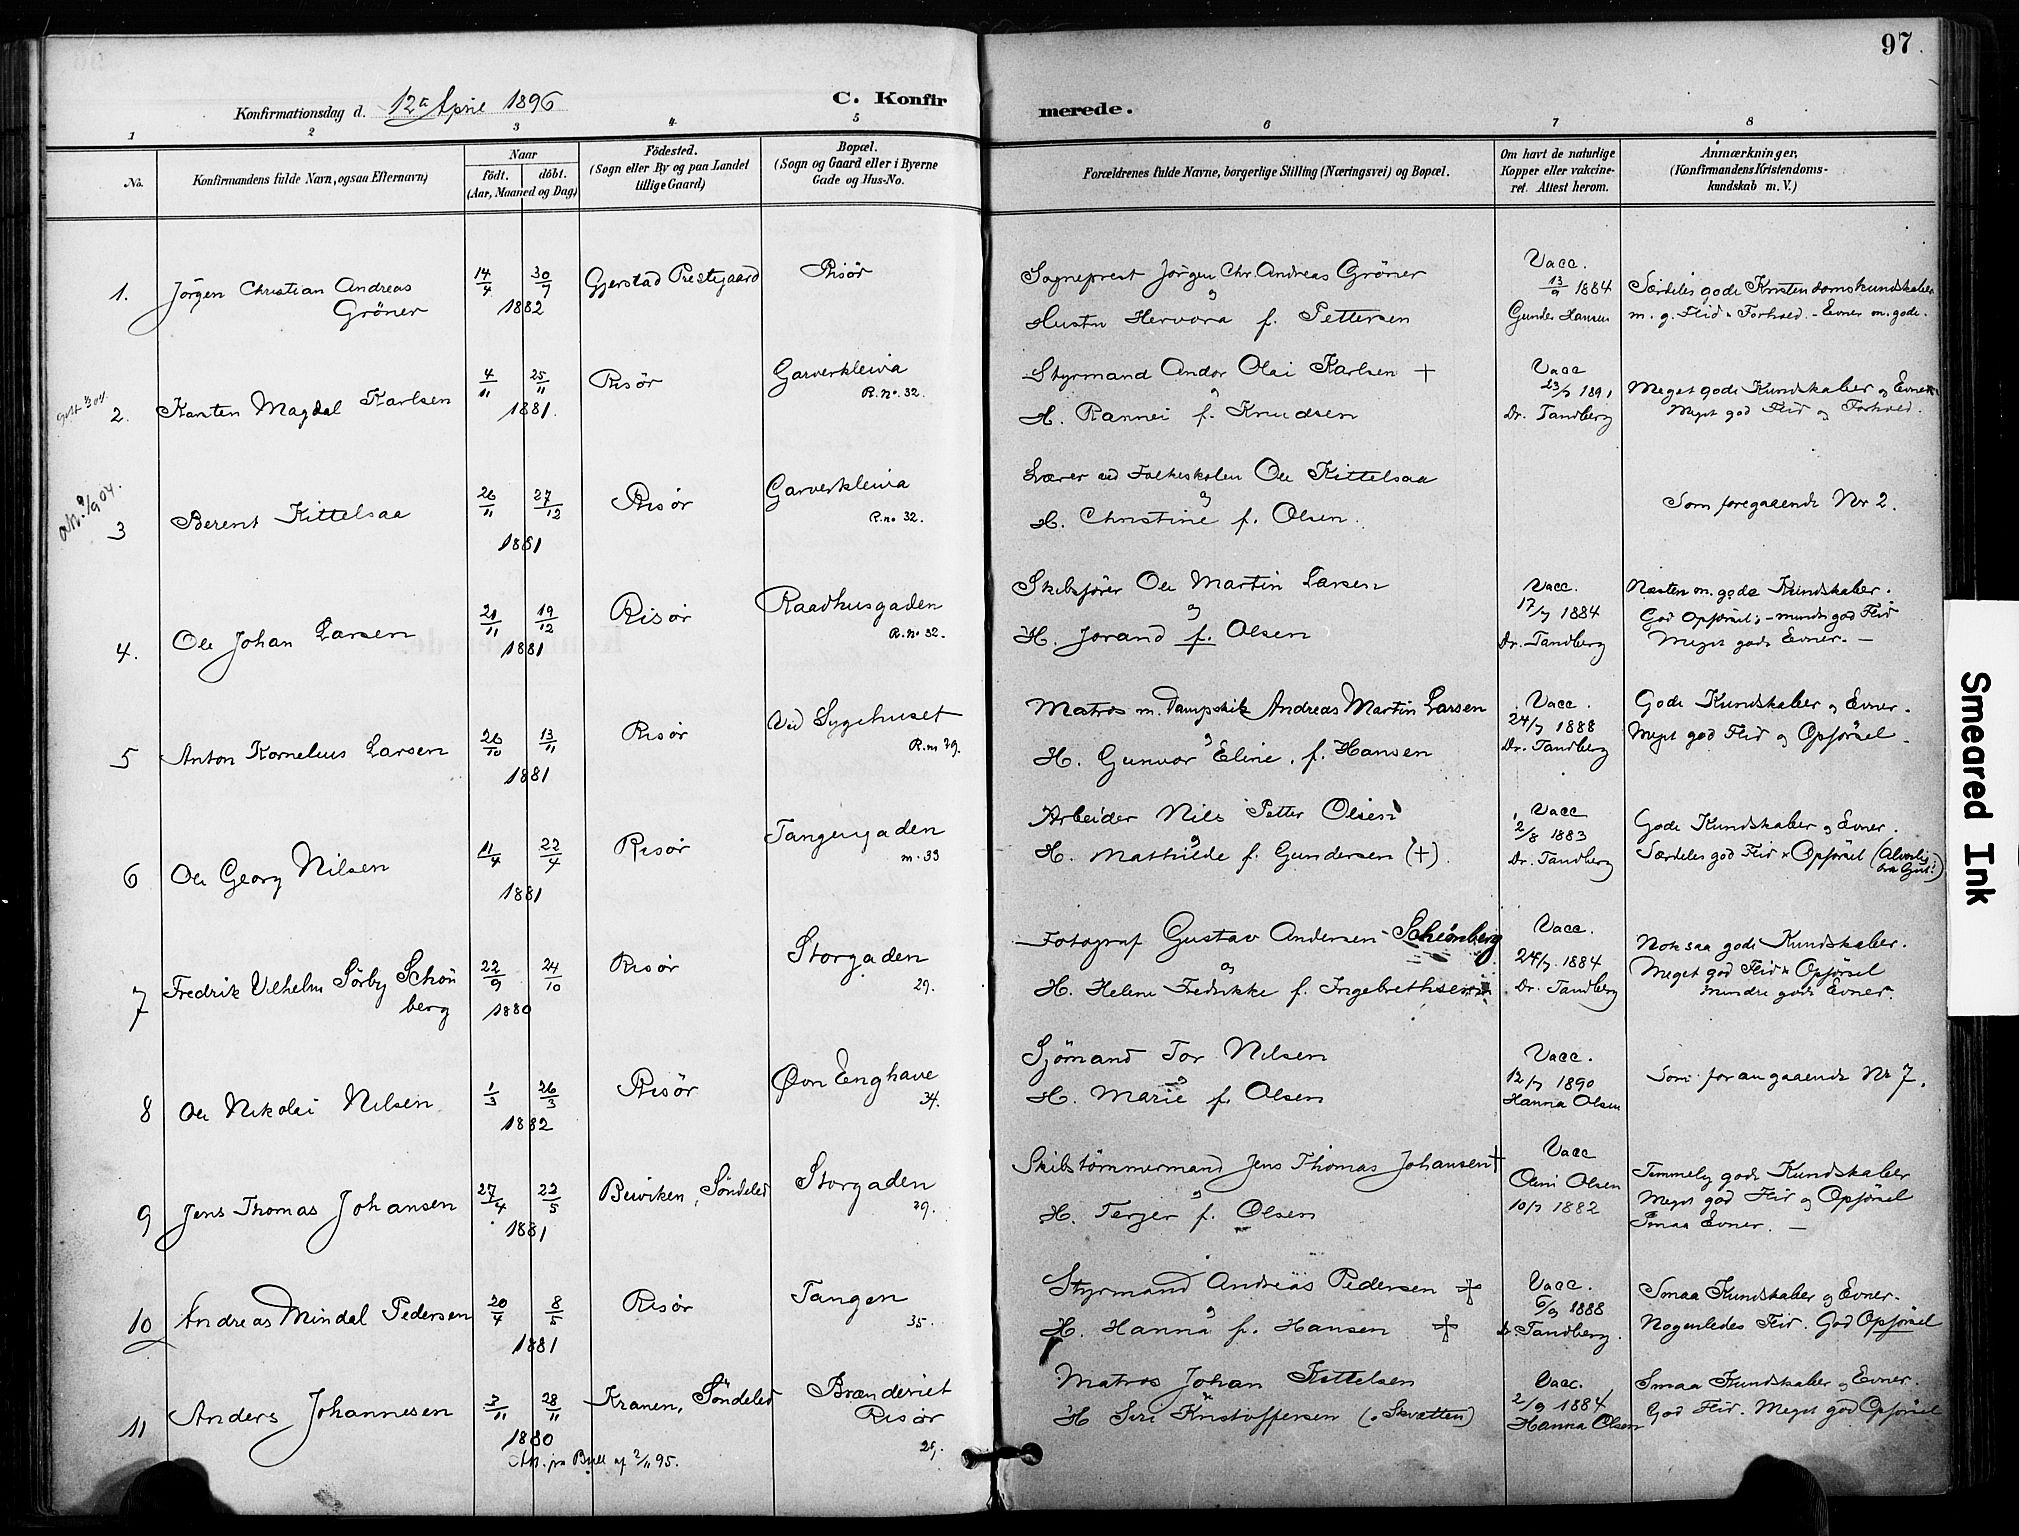 97.
Konfirmationsdag d. 12te April 1896
C. Konfirmerede.
1 2 3 4 5 6 7 8
No.
Konfirmandens fulde Navn, ogsaa Efternavn)
Naar
födt. döbt.
(Aar, Maaned og Dag)
Födested.
(Sogn eller By og paa Landet
tillige Gaard)
Bopæl.
(Sogn og Gaard eller i Byerne
Gade og Hus-No.
Forældrenes fulde Navne, borgerlige Stilling (Næringsvei) og Bopæl.
Om havt de naturlige
Kopper eller vakcine-
ret. Attest herom.
Anmærkninger,
(Konfirmandens Kristendoms-
kundskab m. V.)
1. Jörgen Christian Andreas
Gröner
14/4 30/7
1882
Gjerstad Prestegaard
Risör
Sogneprest Jörgen Chr. Andreas Gröner
og
Hustru Hervora f. Pettersen
Vacc.
13/9 1884
Gunder Hansen
Særdeles gode Kristendomskundskaber
m. g. Flid & Forhold. - Evner m. gode.
2. Karsten Magdal Karlsen
4/11 25/11
1881.
Risör
Garverkleiva
R. No. 32.
Styrmand Andor Olai Karlsen +
og
H. Rannei f. Knudsen
Vacc
23/7 1891
Dr. Tandberg
Meget gode Kundskaber og Evner.
Meget god Flid og Forhold.
3 Berent Kittelsaa
26/11 27/12
1881
Risör
Garverkleiva
R. no 32.
Lærer ved Folkeskolen Ole Kittelsaa
og
H. Christine f. Olsen.
Som foregaaende Nr 2.
4. Ole Johan Larsen
21/11 19/12
1881
Risör
Raadhusgaden
R. No 32.
Skibsförer Ole Martin Larsen
og
H. Jorand f. Olsen
Vacc.
17/7 1884
Dr. Tandberg
Næsten m. gode Kundskaber.
God Opförsel; - mindre god Flid
Meget gode Evner. -
5 Anton Kornelius Larsen
26/10 13/11
1881
Risör
Ved Sygehuset
R. no 29.
Matros m. Dampskib Andreas Martin Larsen
og
H. Gunvor Eline, f. Hansen
Vacc.
24/7 1888
Dr. Tandberg
Gode Kundskaber og Evner.
Meget god Flid og Opförsel.
6 Ole Georg Nilsen
11/4 22/4
1881
Risör
Tangengaden
33
Arbeider Nils Petter Olsen
og
H. Mathilde f. Gundersen (+).
Vacc
2/8 1883
Dr. Tandberg
Gode Kundskaber og Evner.
Særdeles god Flid & Opförsel (Alvorlig
bra Gut!)
7 Fredrik Vilhelm Sörby Schön
berg
22/9 24/10
1880
Risör
Storgaden
29.
Fotograf Gustav Andersen-Schönberg
og
H. Helene Fredrikke f. Ingebrethsen
Vacc.
24/7 1884
Dr. Tandberg
Noksaa gode Kundskaber.
Meget god Flid & Opförsel
Mindre gode Evner.
8 Ole Nikolai Nilsen
1/3 26/3
1882
Risör
Øvn Enghave
34.
Sjömand Tor Nilsen
og
H. Marie f. Olsen
Vacc.
12/7 1890
Hanna Olsen
Som forangaaende Nr 7.
9 Jens Thomas Johansen
27/4 22/5
1881
Beiviken, Söndeled
Storgaden
29.
Skibstömmermand Jens Thomas Johansen +
og
H. Terjer f. Olsen
Vacc
Oleni Olsen
10/7 1882
Temmelig gode Kundskaber
Meget god Flid og Opförsel
Smaa Evner. -
10 Andreas Mindal Pedersen
20/4 8/5
1881
Risör
Tangen
35.
Styrmand Andreas Pedersen +
og
H. Hanna f. Hansen +
Vacc.
6/9 1888
Dr. Tandberg.
Smaa Kundskaber og Evner.
Nogenledes Flid. God Opförsel
11 Anders Johannesen
3/11 28/11
1880
Kranen, Söndeled
Brænderiet
Risör
29.
Matros Johan Kittelsen
H Siri Kristoffersen (o: Skvætten)
Vacc.
2/9 1884
Hanna Olsen
Smaa Kundskaber og Evner.
God Flid. Meget god Opförsel
95.
Smeared Ink